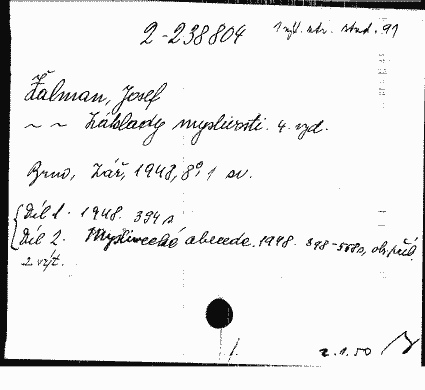 2-238804 1 výt. str. stud. 91
Žalman, Josef
~ ~ Základy myslivosti. 4. vyd.
Brno, Zář, 1948, 8°, 1 sv.
Díl 1. 1948. 394 s
Díl 2. Myslivecká abeceda. 1948. 398-558 s, obr. příl.
2 výt.
2.1.50